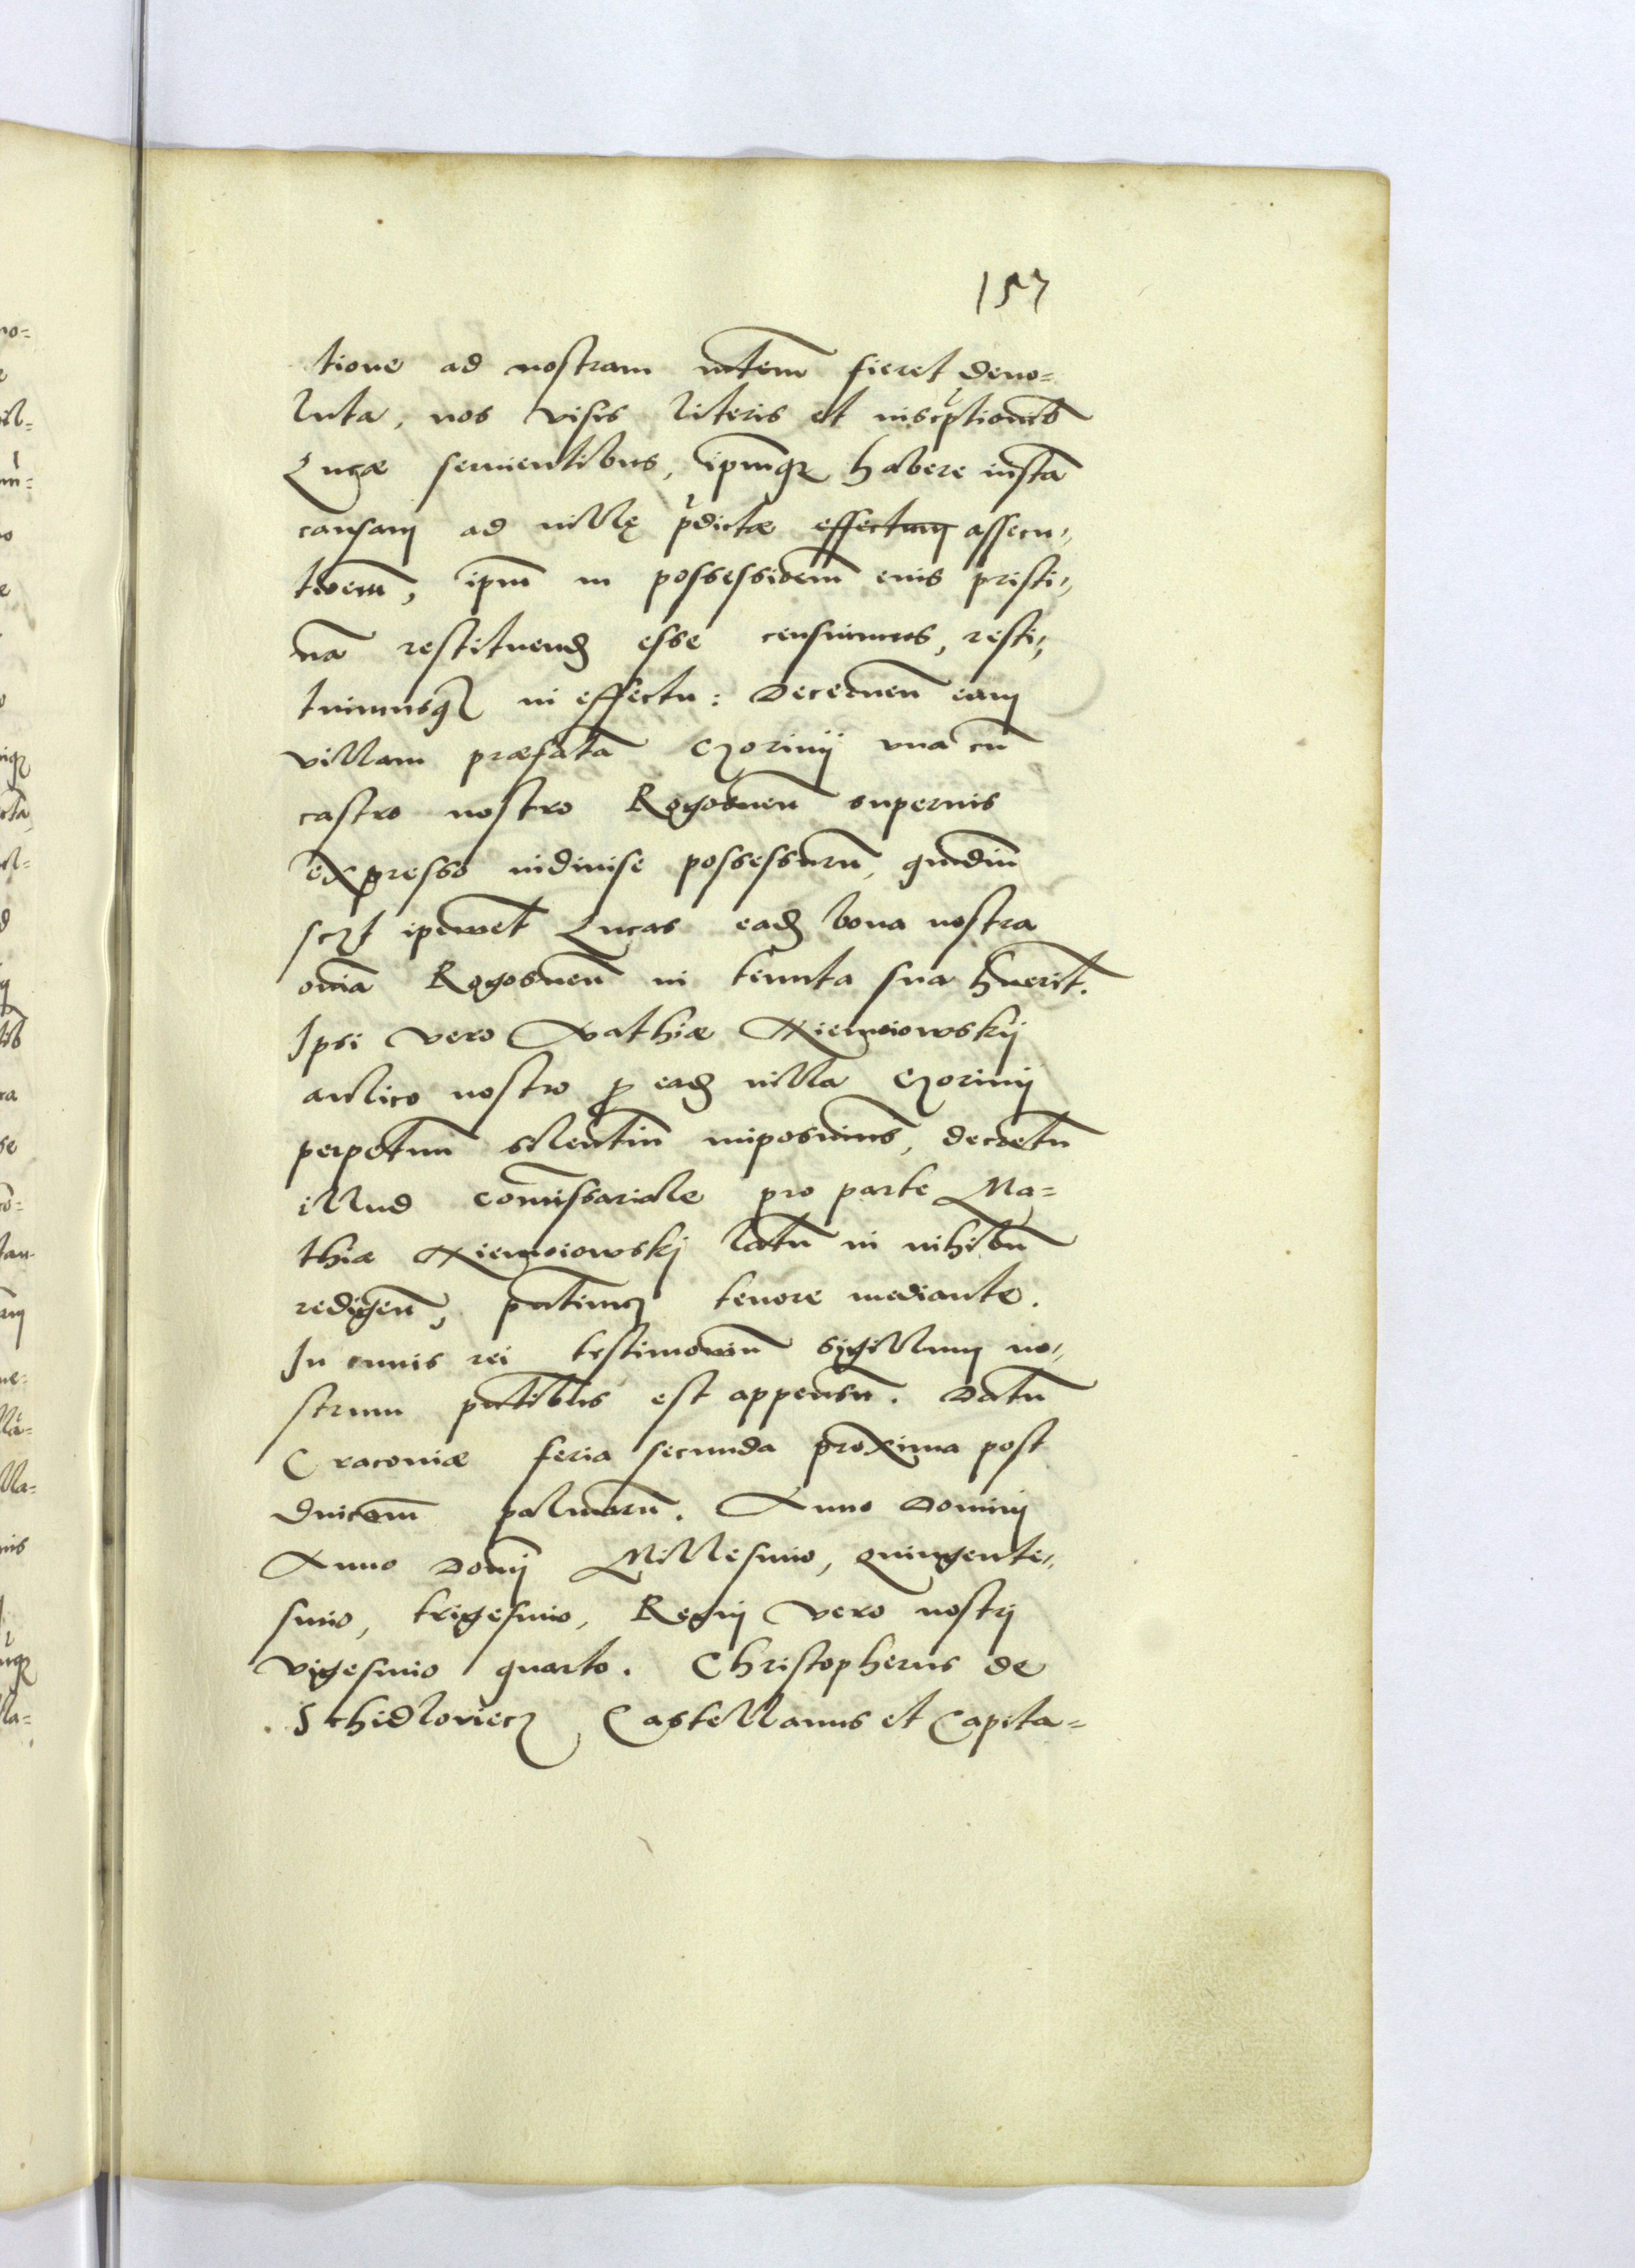 157
tione ad nostram mtem fieret deuo=
luta, nos visis literis et inscptionibs
Lucæ seruientibus, ipmqꝫ habere iustã
causam ad villę pdictæ effectum assecu„
tioem, ipm in possessioem eius pristi„
nã restituend esse censuimus, resti„
tuimusqꝫ in effectu: Decernen eam
villam præfatã Czorinij vna cũ
castro nostro Rogosnen superius
expresso indiuise possessurũ, qmdiu
sczt ipemet Lucas ead bona nostra
omia Rogosnen in tenuta sua hũerit.
Ipsi vero Mathiæ Niemoiowskij
aulico nostro p ead villa Czorinij
perpetuum silentiũ imposuims, decretũ
illud comissariale pro parte Ma=
thiæ Niemoiowskj latũ in nihilũ
redigen, pntium tenore mediante.
In cuius rei testimoniũ sigillum no„
strum pntibus est appensũ. Datũ
Cracouiæ feria secunda proxima post
dnicam palmarũ. Anno Dominij
Anno Domj Millesimo, quingente„
simo, trigesimo, Regnj vero nostrj
vigesimo quarto. Christopherus de
Schidloviecz Castellanus et Capita=